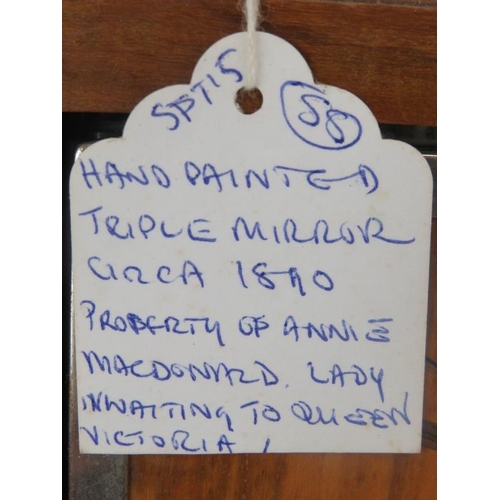 SPT15
58
HAND PAINTED
TRIPLE MIRROR
CIRCA 1890
PROPERTY OF ANNIE
MACDONALD. LADY
INWAITING TO QUEEN
VICTORIA /